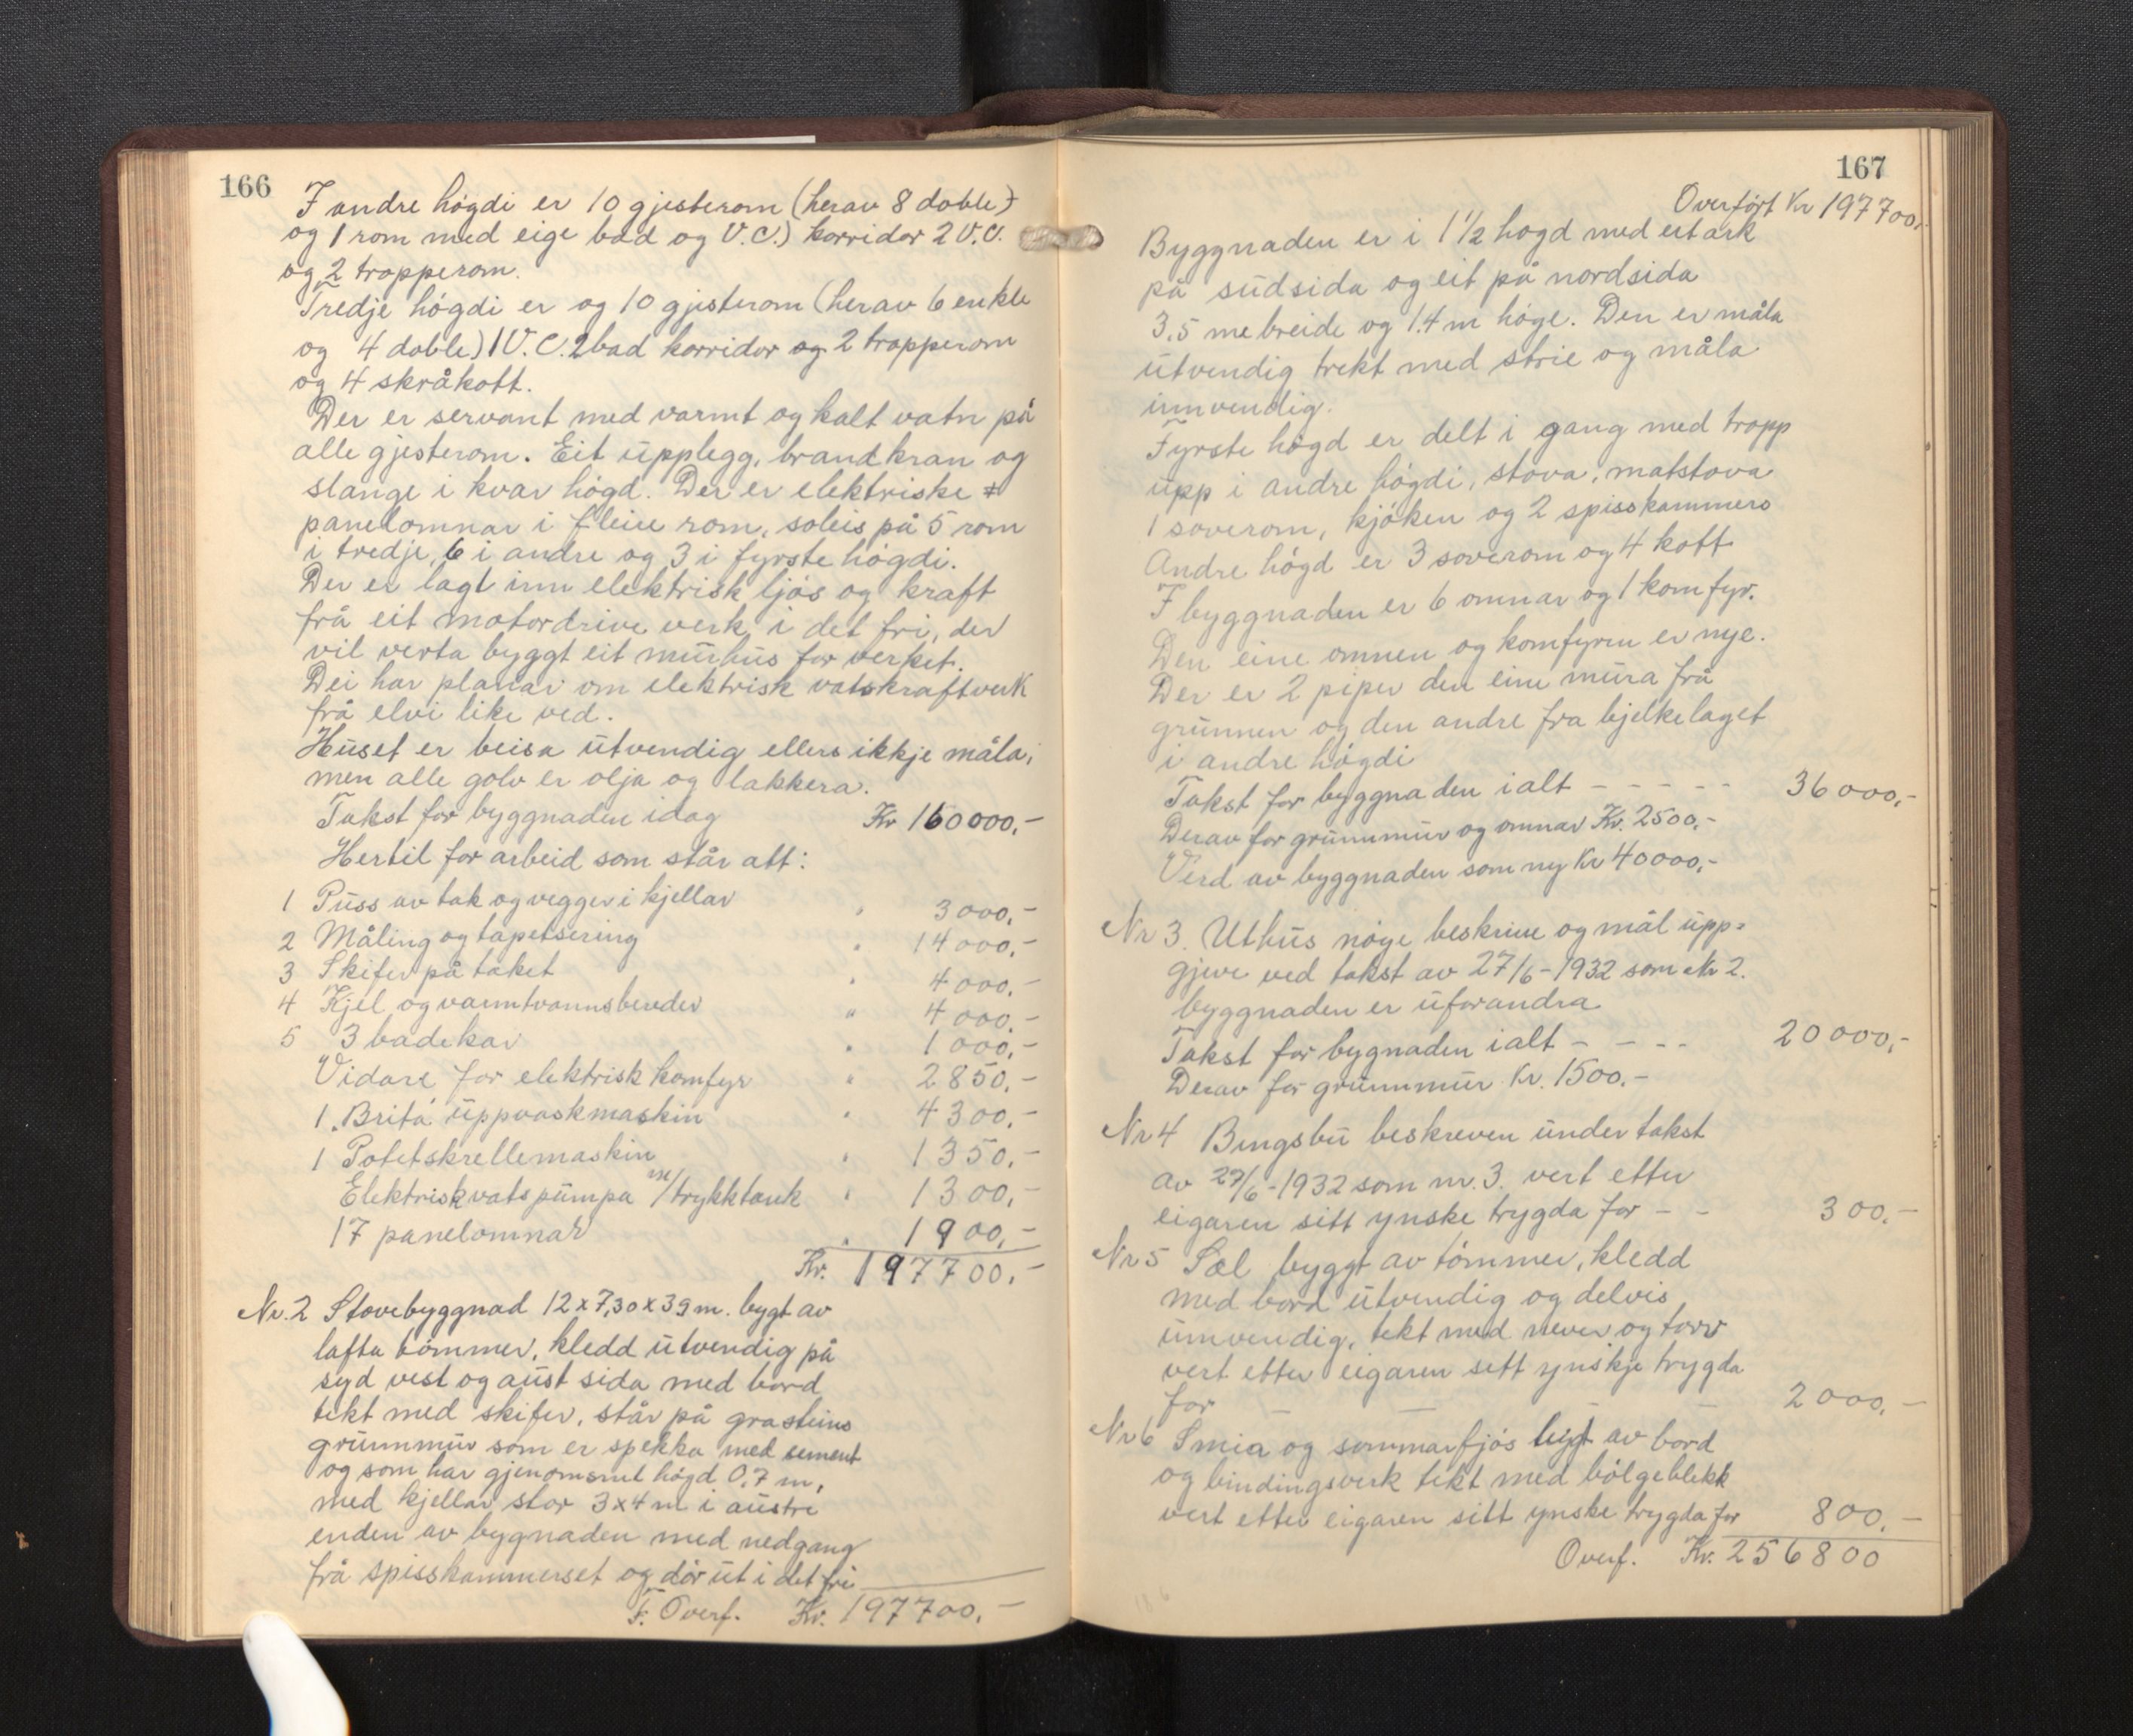 166
I andre högdi er 10 gjesterom (herav 8 doble)
og 1 rom med eige bad og V.C.) korridor 2 V.C.
og 2 tropperom.
Tredje högdi er og 10 gjesterom (herav 6 enkle
og 4 doble) 1 V.C. 2 bad korridor og 2 tropperom
og 4 skråkott.
Der er servant med varmt og kalt vatn på
alle gjesterom. Eit upplegg, brandkran og
slange i kvar högd. Der er elektriske
panelomnar i fleire rom, soleis på 5 rom
i tredje, 6 i andre og 3 i fyrste högdi.
Der er lagt inn elektrisk ljós og kraft
frå eit motordrive verk i det fri, der
vil verta byggt eit murhus for verket.
Dei har planar om elektrisk vatskraftverk
frå elvi like ved.
Huset er beisa utvendig ellers ikkje måla,
men alle golv er olja og lakkera.
Takst for byggnaden idag Kr 160000,-
Hertil for arbeid som står att:
1 Puss av tak og vegger i kjellar " 3000,-
2 Måling og tapetsering " 14000,-
3 Skifer på taket " 4000,-
4 Kjel og varmtvannsbereder " 4000,-
5 3 badekar " 1000,-
Vidare for elektrisk komfyr " 2850,-
1 "Brita" uppvaskmaskin " 4300,-
1 Potetskrellemaskin " 1350,-
Elektrisk vatspumpa m/trykktank " 1300,-
17 panelomnar " 1900,-
Kr. 197700,-
Nr. 2 Stovebyggnad 12x7,30x39m. bygt av
lafta tömmer, kledd utvendig på
syd vest og aust sida med bord
tekt med skifer, står på grasteins
grunnmur som er spekka med sement
og som har gjenomsnit högd 0.7 m,
med kjellar stor 3x4 m i austre
enden av bygnaden med nedgang
frå spisskammerset og dör ut i det fri
F. Overf. Kr. 197700,-
167
Overfört Kr 197700,-
Byggnaden er i 1 1/2 högd med eit ark
på sudsida og eit på nordsida
3,5 m breide og 1.4 m höge. Den er måla
utvendig trekt med strie og måla
innvendig.
Fyrste högd er delt i gang med tropp
upp i andre högdi, stova, matstova
1 soverom, kjöken og 2 spisskammers
Andre högd er 3 soverom og 4 kott
I byggnaden er 6 omnar og 1 komfyr.
Den eine omnen og komfyren er nye.
Der er 2 piper den eine mura frå
grunnen og den andre fra bjelkelaget
i andre högdi
Takst for byggnaden ialt - - - - - 36000,-
Derav for grunnmur og omnar Kr. 2500,-
Verd av byggnaden som ny Kr 40000,-
Nr 3. Uthus nöye beskrive og mål upp-
gjeve ved takst av 27/6-1932 som Nr 2.
byggnaden er uforandra
Takst for bygnaden ialt - - - - 20000,-
Derav for grunnmur Kr. 1500,-
Nr 4 Bingsbu beskreven under takst
av 27/6-1932 som nr. 3. vert etter
eigaren sitt ynske trygda for - - 300,-
Nr 5 Sel byggt av tömmer, kledd
med bord utvendig og delvis
innvendig, tekt med never og torv
vert etter eigaren sett ynskje trygda
for - - - 2000,-
Nr 6 Smia og sommarfjós bygt av bord
og bindingsverk tekt med bölgeblekk
vert etter eigaren sitt ynske trygda for 800,-
Overf. Kr. 256800